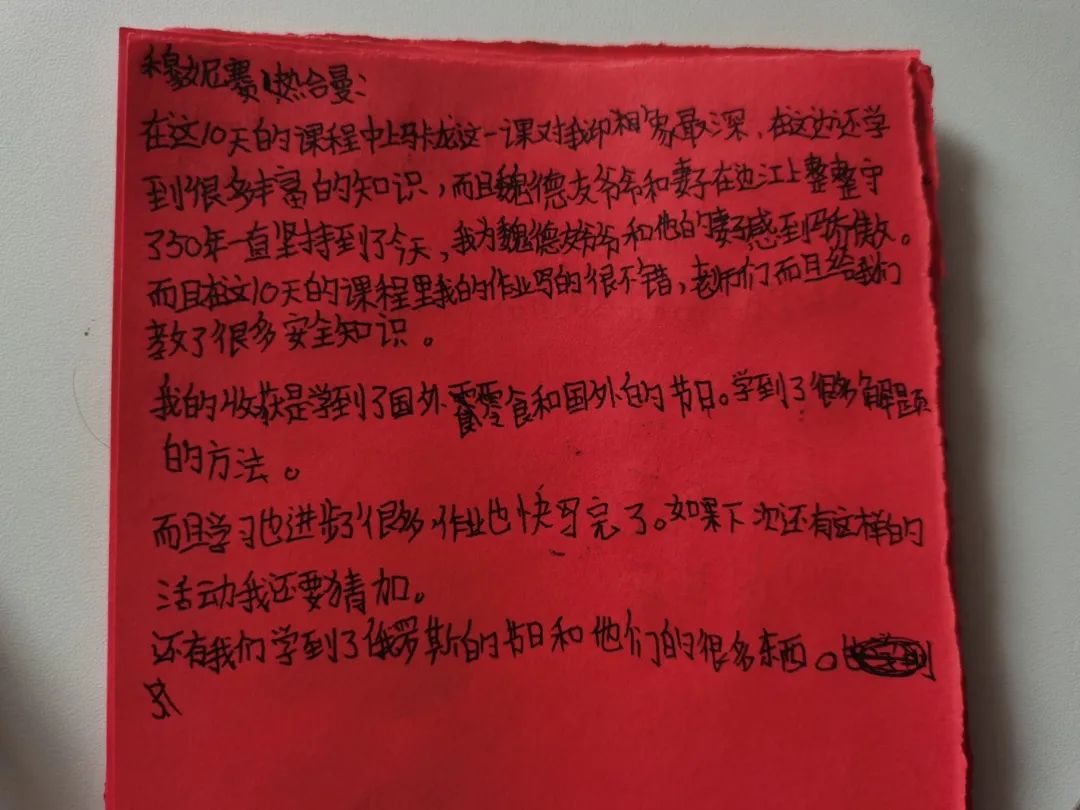 穆妮尼赛·热合曼：
在这10天的课程中上马卡龙这一课对我印相象最深，在这边还学
到很多丰富的知识，而且魏德友爷爷和妻子在边江上整整守
了50年一直坚持到了今天，我为魏德友爷爷和他的妻子感到骄傲。
而且在这10天的课程里我的作业写的很不错，老师们而且给我们
教了很多安全知识。
我的收获是学到了国外零食和国外的节日。学到了很多解题
的方法。
而且学习也进步了很多，作业也快写完了。如果下次还有这样的
活动我还要猜加。
还有我们学到了俄罗斯的节日和他们的很多东西。